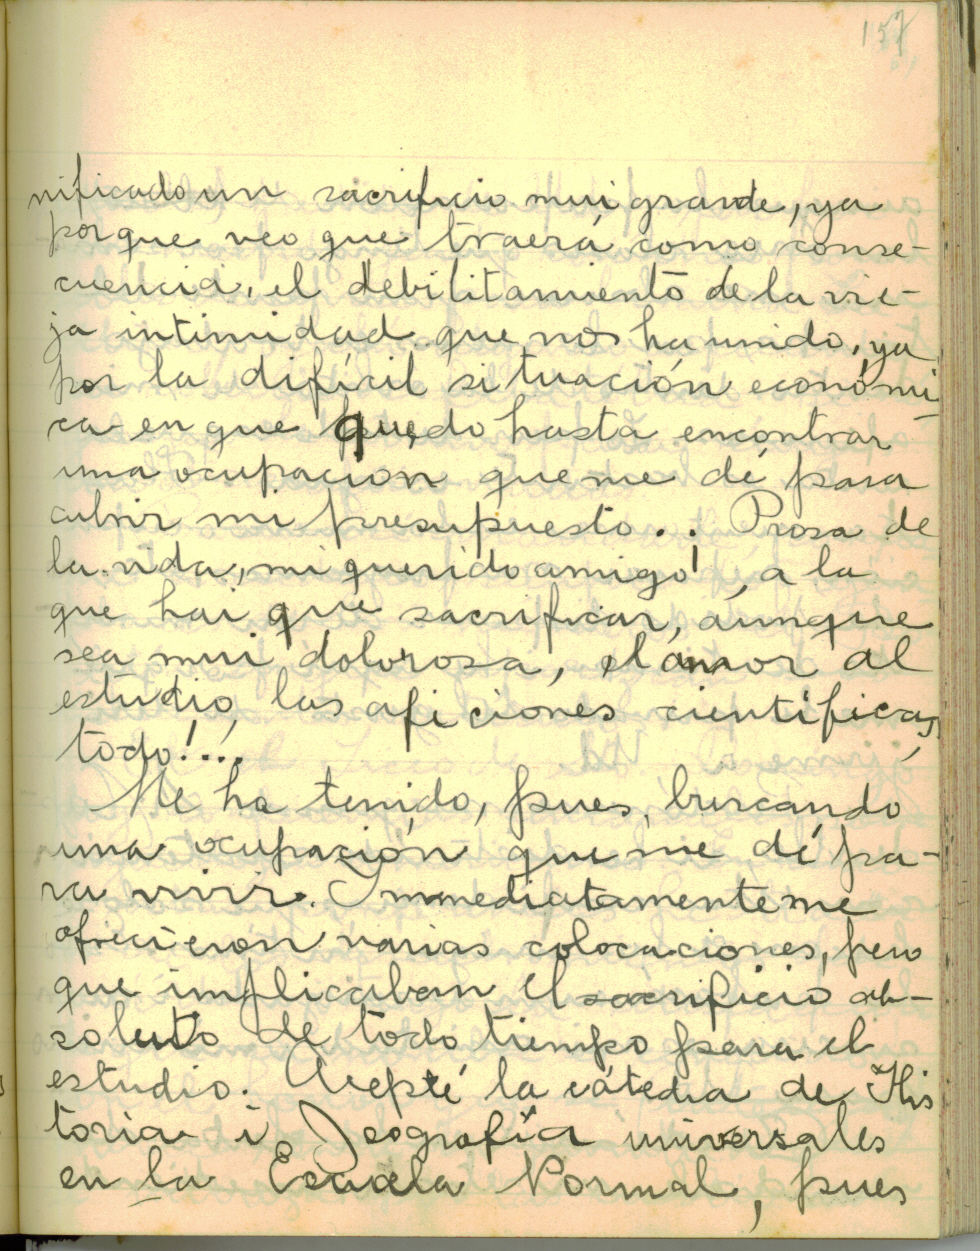 157
nificado un sacrificio mui grande, ya
porque veo que traerá como conse-
cuencia, el debilitamiento de la vie-
ja intimidad que nos ha unido, ya
por la difícil situación económi-
ca en que quedo hasta encontrar
una ocupación que me dé para
cubrir mi presupuesto... Prosa de
la vida, mi querido amigo!, a la
que hai que sacrificar, aunque
sea mui dolorosa, el amor al
estudio, las aficiones científicas,
todo!...
Me ha tenido, pues, buscando
una ocupación que me dé pa-
ra vivir. Inmediatamente me
ofrecieron varias colocaciones, pero
que implicaban el sacrificio ab-
soluto de todo tiempo para el
estudio. Acepté la cátedra de His
toria i Jeografía universales
en la Escuela Normal, pues